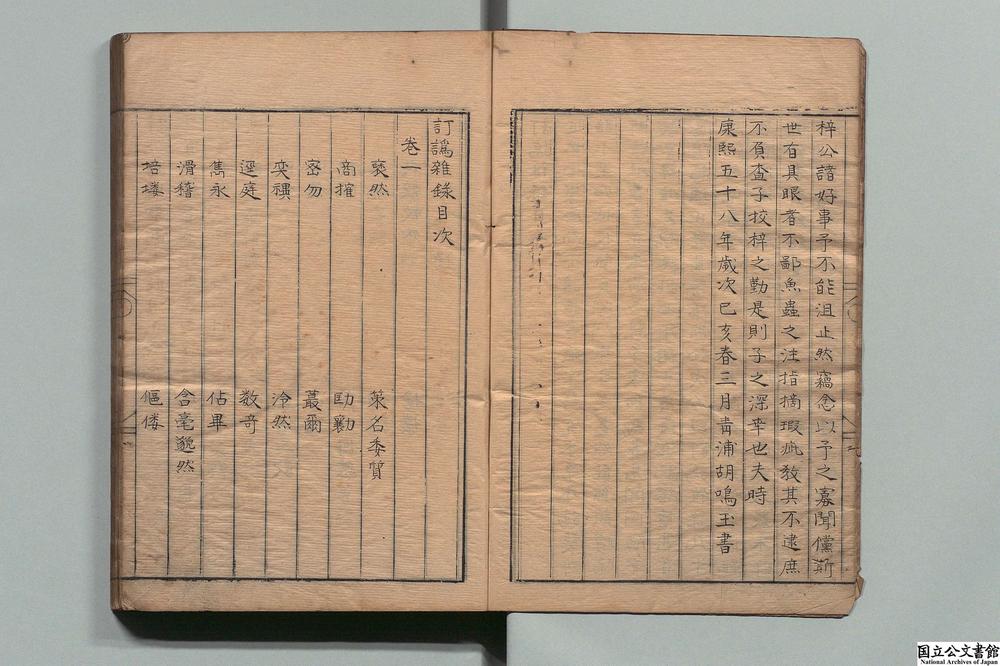 梓公諸好事予不能沮止然竊念以予之寡聞儻斯
世有具眼者不鄙魚蟲之注指摘瑕疵教其不逮庶
不負查子挍梓之勤是則予之深幸也夫時
康熙五十八年歲次己亥春三月青浦胡鳴玉書
訂譌雜錄目次
卷一
褎然 策名委質
商搉 劻勷
密勿 蕞爾
奕禩 泠然
逕庭 數奇
雋永 佔畢
滑稽 含毫邈然
培塿 傴僂
国立公文書館
National Archives of Japan